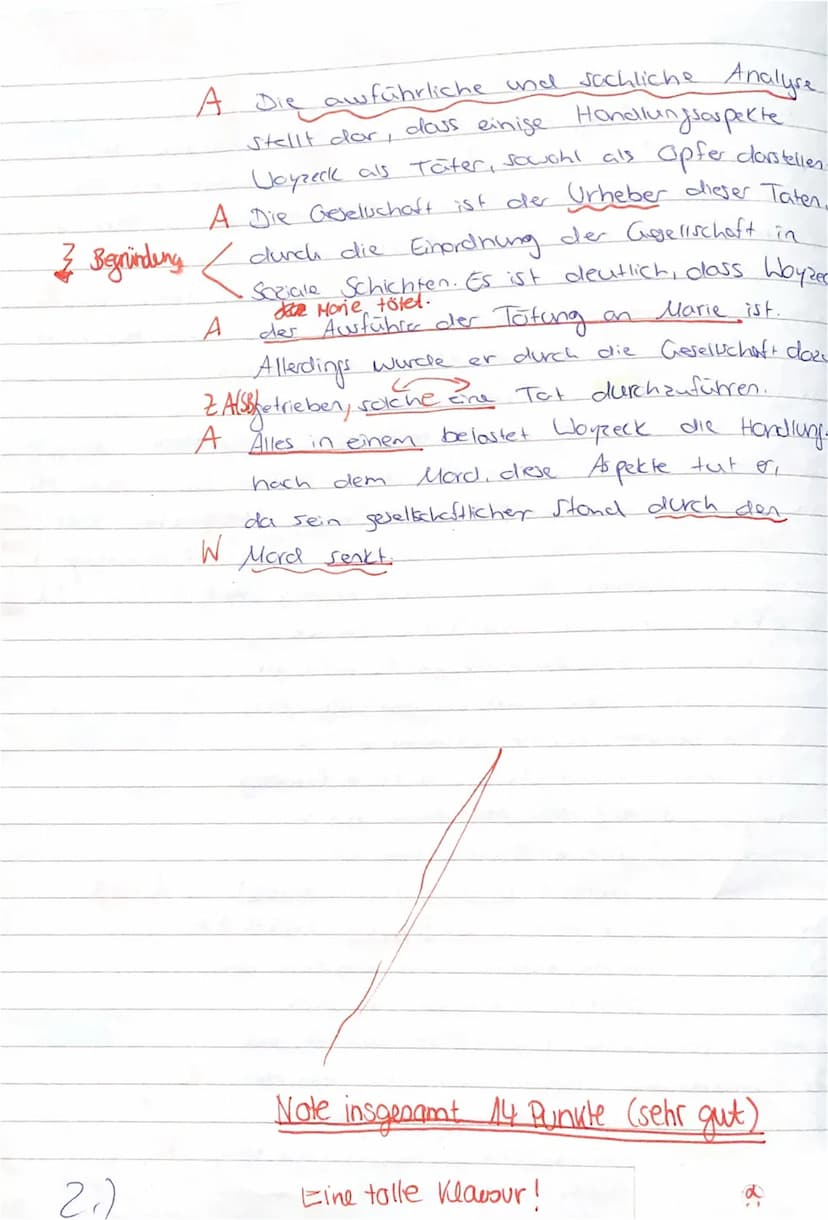 A Die ausführliche und sachliche Analyse
stellt dar, dass einige Handlungsaspekte
Woyzeck als Täter, sowohl als Opfer darstellen
A Die Gesellschaft ist der Urheber dieser Taten,
Begründung durch die Einordnung der Gesellschaft in
Soziale Schichten. Es ist deutlich, dass Woyzec
Marie tötet.
A der Ausführer der Tötung an Marie ist.
Allerdings wurde er durch die Gesellschaft dazu
Z A(SB) getrieben, solche eine Tat durchzuführen.
A Alles in einem belastet Woyzeck die Handlung
nach dem Mord, diese Aspekte tut er,
da sein gesellschaftlicher Stand durch den
W Mord senkt.
Note insgesamt 14 Punkte (sehr gut)
2.) Eine tolle Klausur!